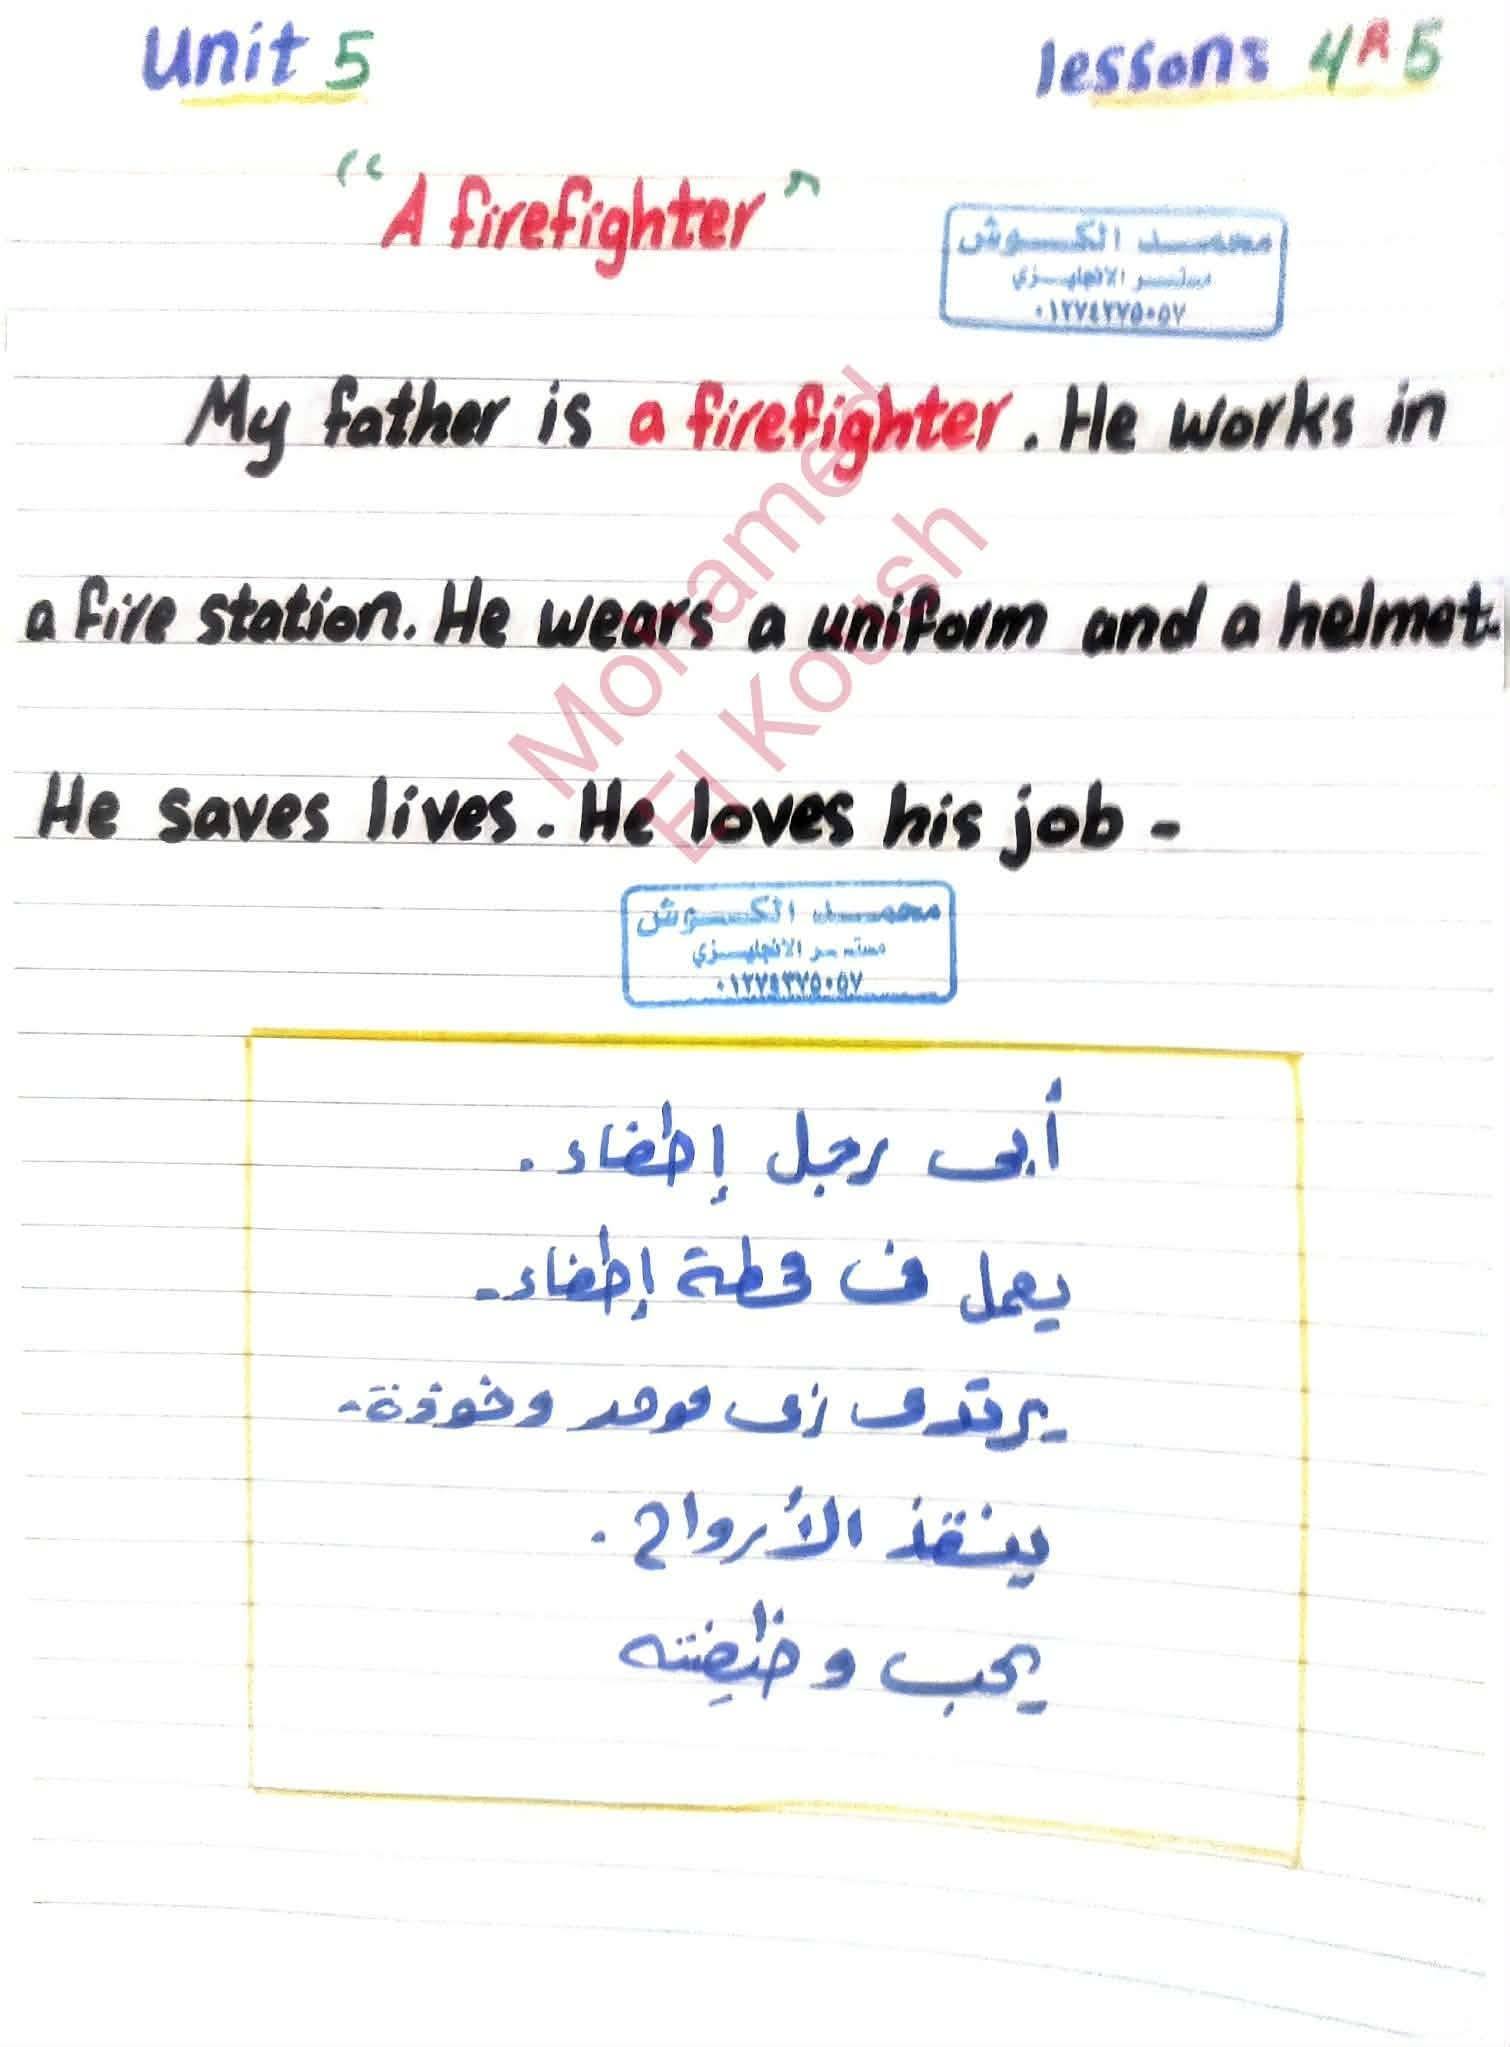 Unit 5
lessons 4 & 5
"A firefighter"
محمد الكوش
مستر الانجليزي
٠١٢٧٤٣٧٥٠٥٧
My father is a firefighter. He works in
a fire station. He wears a uniform and a helmet.
He saves lives. He loves his job -
Mohamed
El Koush
محمد الكوش
مستر الانجليزي
٠١٢٧٤٣٧٥٠٥٧
أبى رجل إطفاء.
يعمل فى محطة إطفاء-
يرتدى زى موحد وخوذة-
ينقذ الأرواح.
يحب وظيفته